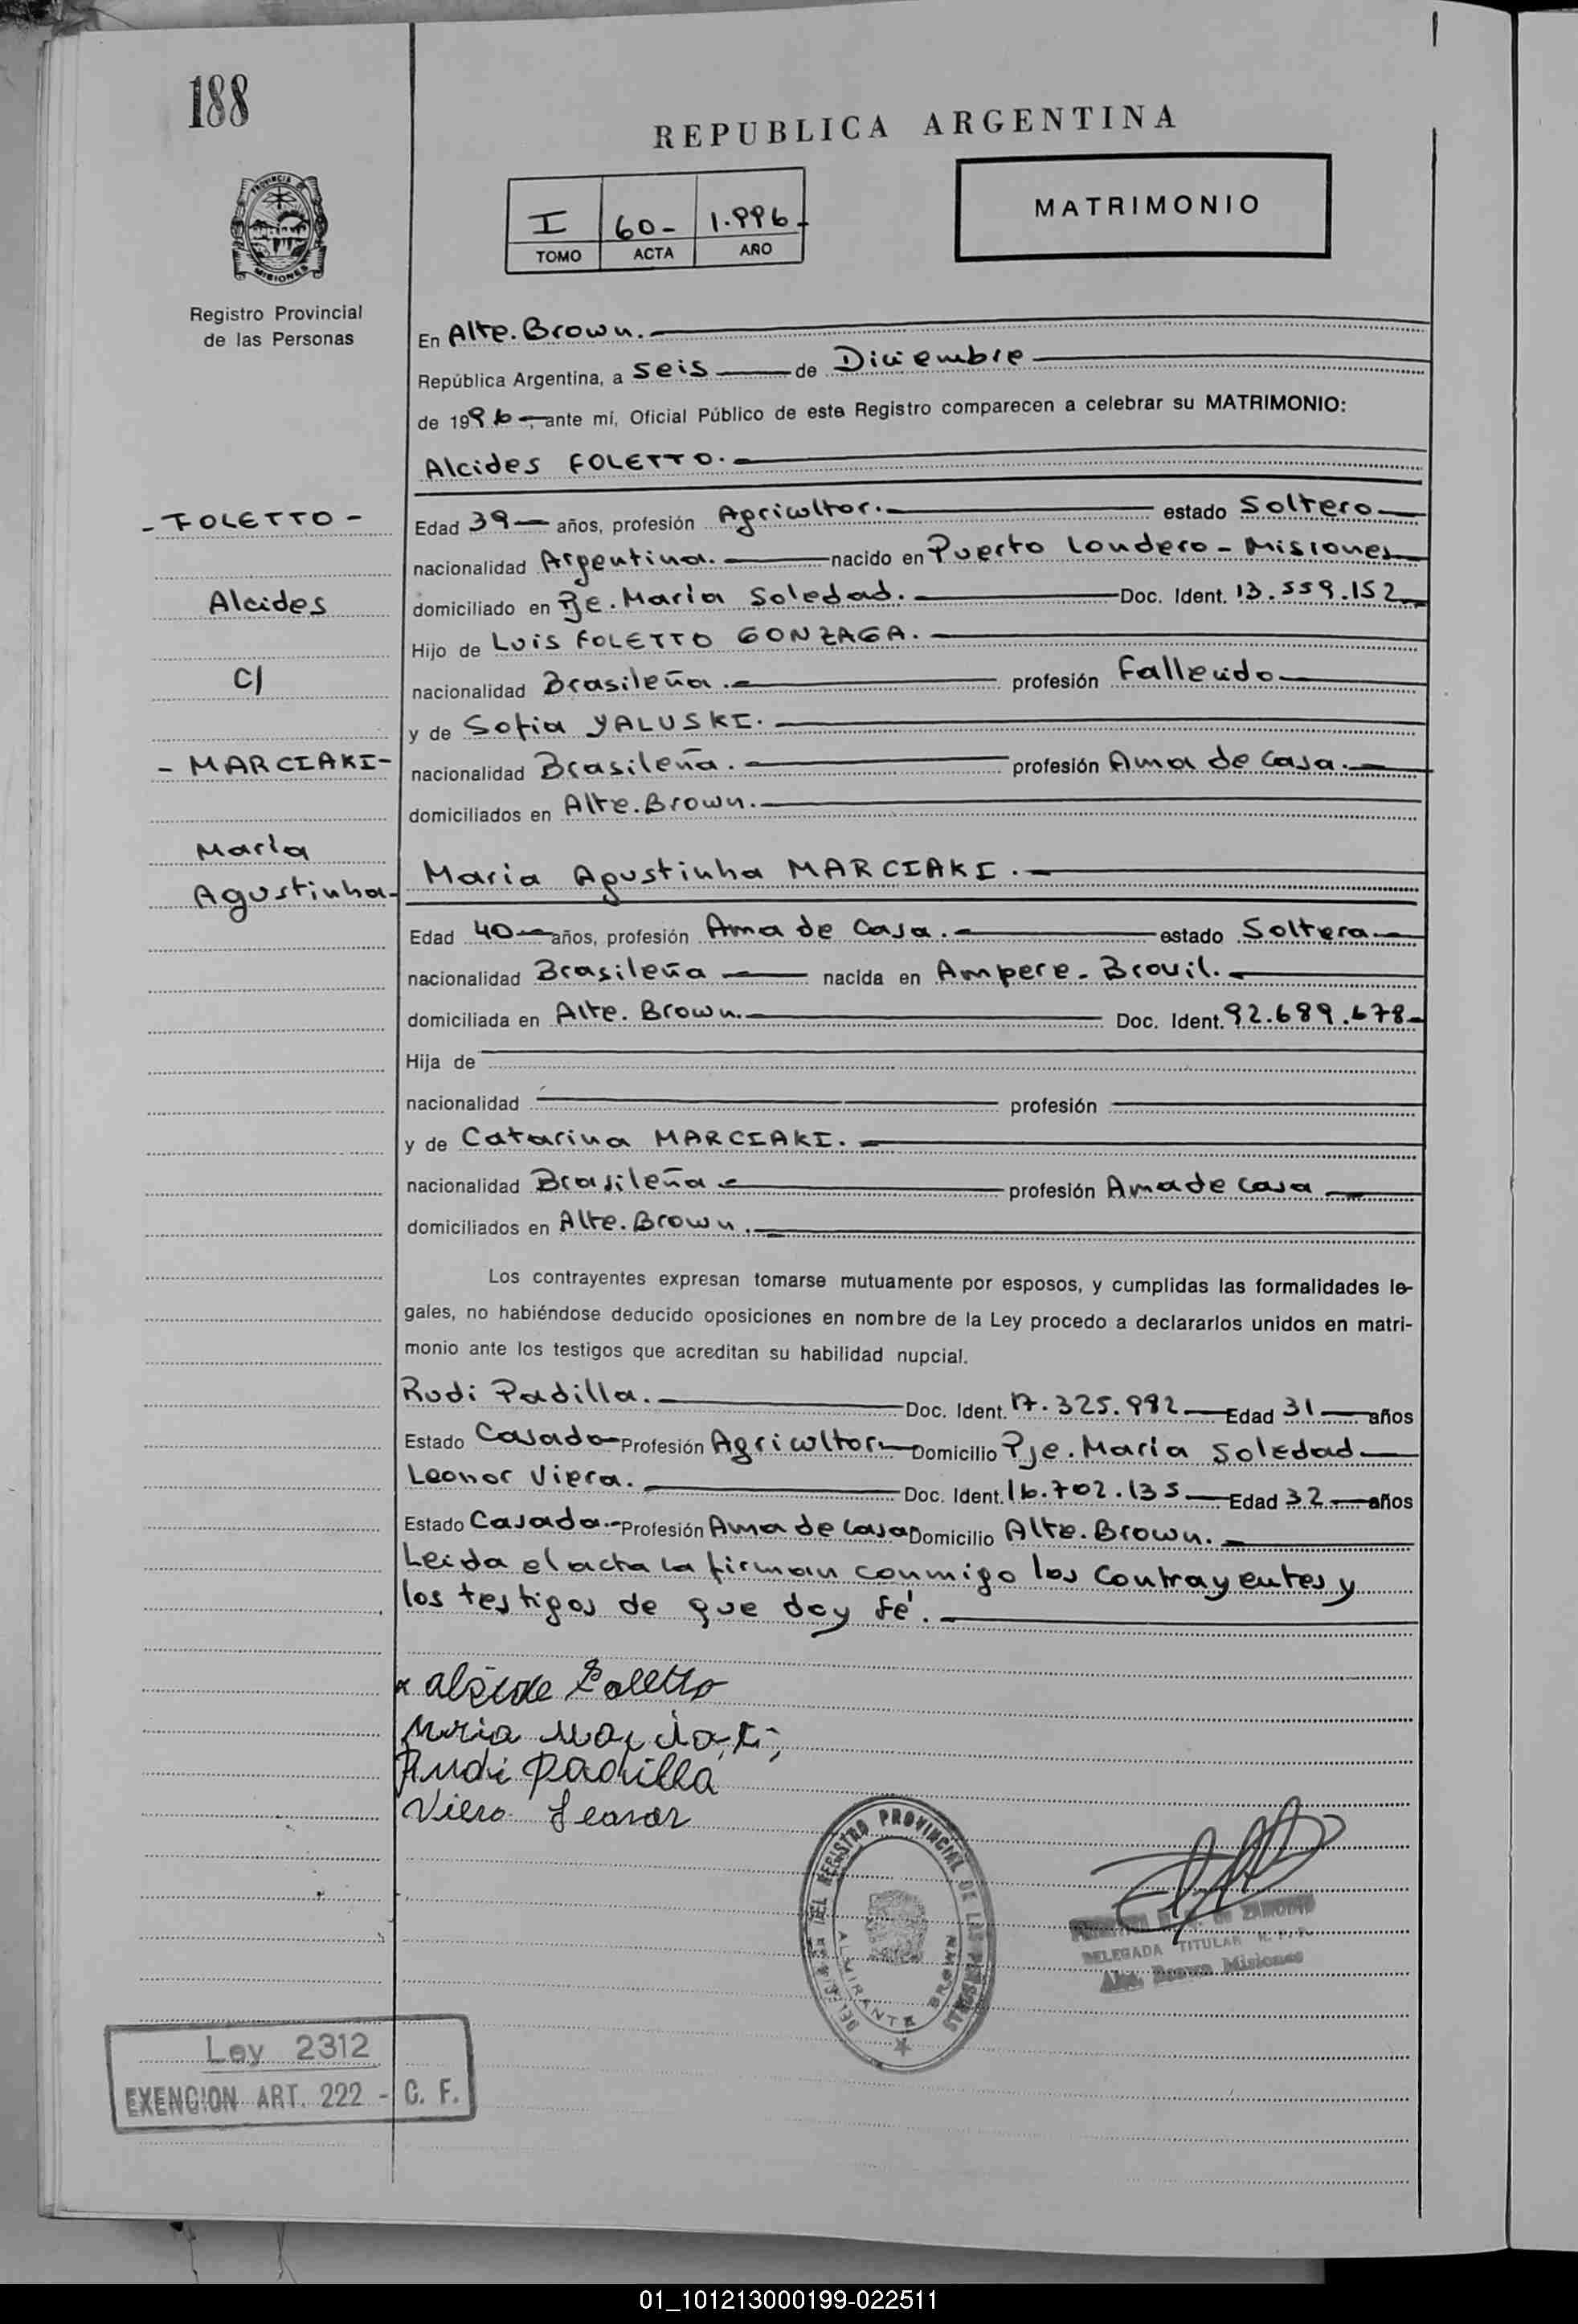 188
REPUBLICA ARGENTINA
I 60- 1.996-
TOMO ACTA AÑO
MATRIMONIO
PROVINCIA DE
MISIONES
Registro Provincial
de las Personas
En Alte. Brown.
República Argentina, a seis de Diciembre
de 1996, ante mí, Oficial Público de este Registro comparecen a celebrar su MATRIMONIO:
Alcides FOLETTO.
- FOLETTO -
Edad 39 años, profesión Agricultor. estado Soltero
nacionalidad Argentina. nacido en Puerto Londero - Misiones
Alcides
domiciliado en Pje. María Soledad. Doc. Ident. 13.559.152
Hijo de Luis FOLETTO GONZAGA.
C/
nacionalidad Brasileña. profesión Fallecido
y de Sofia YALUSKI.
- MARCIAKI -
nacionalidad Brasileña. profesión Ama de Casa.
domiciliados en Alte. Brown.
María
Agustinha-
Maria Agustinha MARCIAKI.
Edad 40 años, profesión Ama de Casa. estado Soltera
nacionalidad Brasileña nacida en Ampere - Brasil.
domiciliada en Alte. Brown. Doc. Ident. 92.689.678-
Hija de
nacionalidad profesión
y de Catarina MARCIAKI.
nacionalidad Brasileña profesión Ama de Casa
domiciliados en Alte. Brown.
Los contrayentes expresan tomarse mutuamente por esposos, y cumplidas las formalidades le-
gales, no habiéndose deducido oposiciones en nombre de la Ley procedo a declararlos unidos en matri-
monio ante los testigos que acreditan su habilidad nupcial.
Rudi Padilla. Doc. Ident. 17.325.992 Edad 31 años
Estado Casado Profesión Agricultor Domicilio Pje. María Soledad
Leonor Viera. Doc. Ident. 16.702.135 Edad 32 años
Estado Casada. Profesión Ama de Casa Domicilio Alte. Brown.
Leida el acta la firman conmigo los Contrayentes y
los testigos de que doy fé.
x alside Foletto
Maria Marciaki
Rudi Padilla
Viera Leonor
DELEGACION DEL REGISTRO PROVINCIAL DE LAS PERSONAS
ALMIRANTE BROWN
DELEGADA TITULAR R. P. P.
Alte. Brown Misiones
Ley 2312
EXENCION ART. 222 - C. F.
01_101213000199-022511